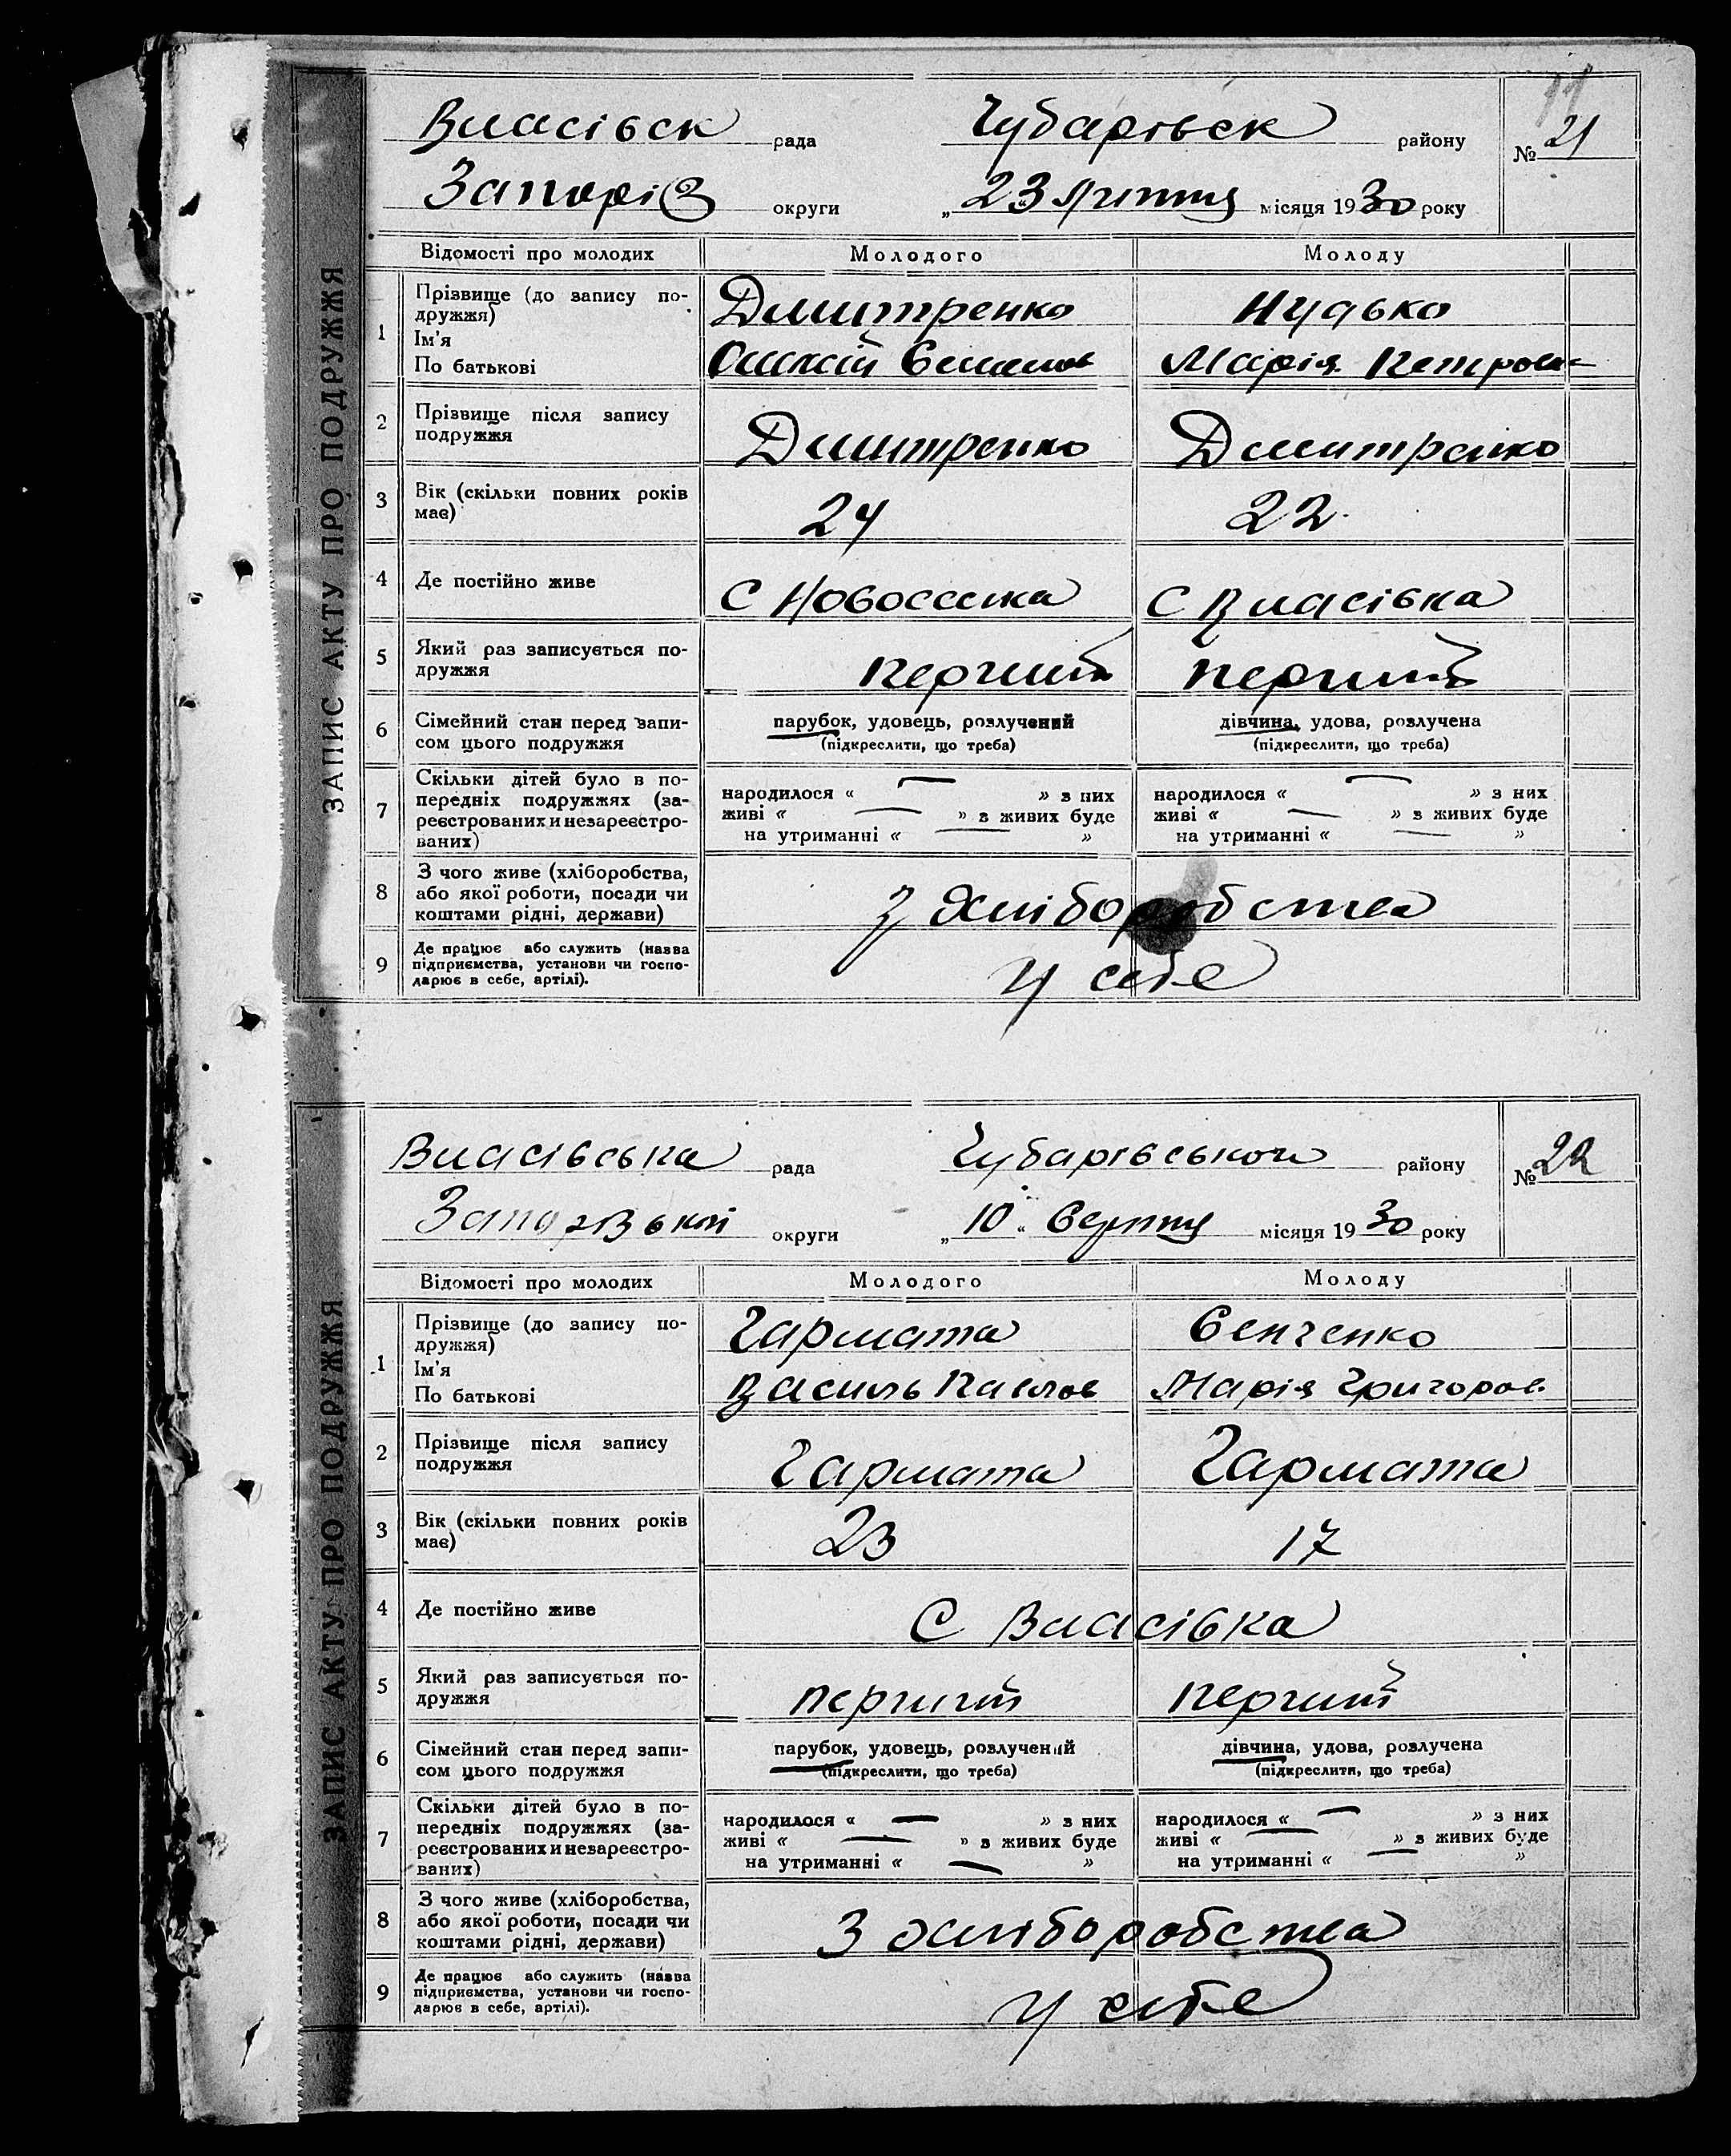 11
Власівськ рада Чубарівськ району № 21
Запоріз округи „ 23 “ Липня місяця 1930 року
ЗАПИС АКТУ ПРО ПОДРУЖЖЯ
Відомості про молодих Молодого Молоду
1 Прізвище (до запису по-
дружжя) Дмитренко Нудько
Ім'я
По батькові Марія Петровн
2 Прізвище після запису
подружжя Дмитренко Дмитренко
3 Вік (скільки повних років
має) 24 22
4 Де постійно живе С Новоселка С Власівка
5 Який раз записується по-
дружжя перший перший
6 Сімейний стан перед запи-
сом цього подружжя
парубок, удовець, розлучений дівчина, удова, розлучена
(підкреслити, що треба) (підкреслити, що треба)
7 Скільки дітей було в по-
передніх подружжях (за-
реєстрованих и незареєстро-
ваних)
народилося « — » з них народилося « — » з них
живі « — » з живих буде живі « — » з живих буде
на утриманні « — » на утриманні « — »
8 З чого живе (хліборобства,
або якої роботи, посади чи
коштами рідні, держави) З хліборобства
9 Де працює або служить (назва
підприємства, установи чи госпо-
дарює в себе, артілі). У себе
Власівська рада Чубарівського району № 22
Запорізької округи „ 10 “ Серпня місяця 1930 року
ЗАПИС АКТУ ПРО ПОДРУЖЖЯ
Відомості про молодих Молодого Молоду
1 Прізвище (до запису по-
дружжя) Гармата Сенченко
Ім'я
По батькові Василь Павлов Марія Григоров.
2 Прізвище після запису
подружжя Гармата Гармата
3 Вік (скільки повних років
має) 23 17
4 Де постійно живе С Власівка
5 Який раз записується по-
дружжя перший перший
6 Сімейний стан перед запи-
сом цього подружжя
парубок, удовець, розлучений дівчина, удова, розлучена
(підкреслити, що треба) (підкреслити, що треба)
7 Скільки дітей було в по-
передніх подружжях (за-
реєстрованих и незареєстро-
ваних)
народилося « — » з них народилося « — » з них
живі « — » з живих буде живі « — » з живих буде
на утриманні « — » на утриманні « — »
8 З чого живе (хліборобства,
або якої роботи, посади чи
коштами рідні, держави) З хліборобства
9 Де працює або служить (назва
підприємства, установи чи госпо-
дарює в себе, артілі). У себе